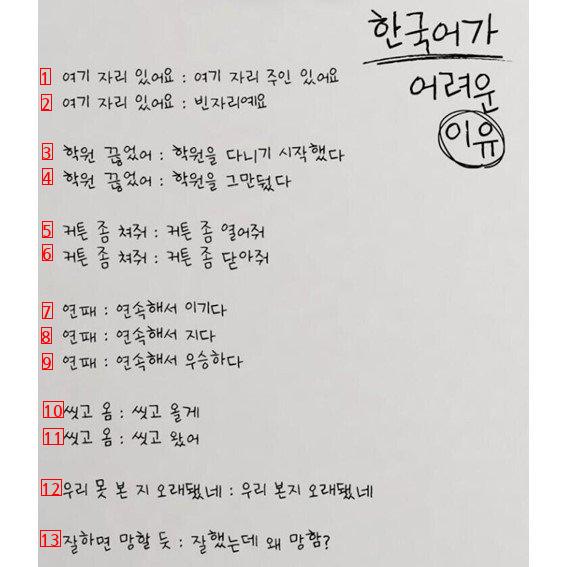 한국어가
어려운
이유
1 여기 자리 있어요 : 여기 자리 주인 있어요
2 여기 자리 있어요 : 빈자리예요
3 학원 끊었어 : 학원을 다니기 시작했다
4 학원 끊었어 : 학원을 그만뒀다
5 커튼 좀 쳐줘 : 커튼 좀 열어줘
6 커튼 좀 쳐줘 : 커튼 좀 닫아줘
7 연패 : 연속해서 이기다
8 연패 : 연속해서 지다
9 연패 : 연속해서 우승하다
10 씻고 옴 : 씻고 올게
11 씻고 옴 : 씻고 왔어
12 우리 못 본 지 오래됐네 : 우리 본지 오래됐네
13 잘하면 망할 듯 : 잘했는데 왜 망함?